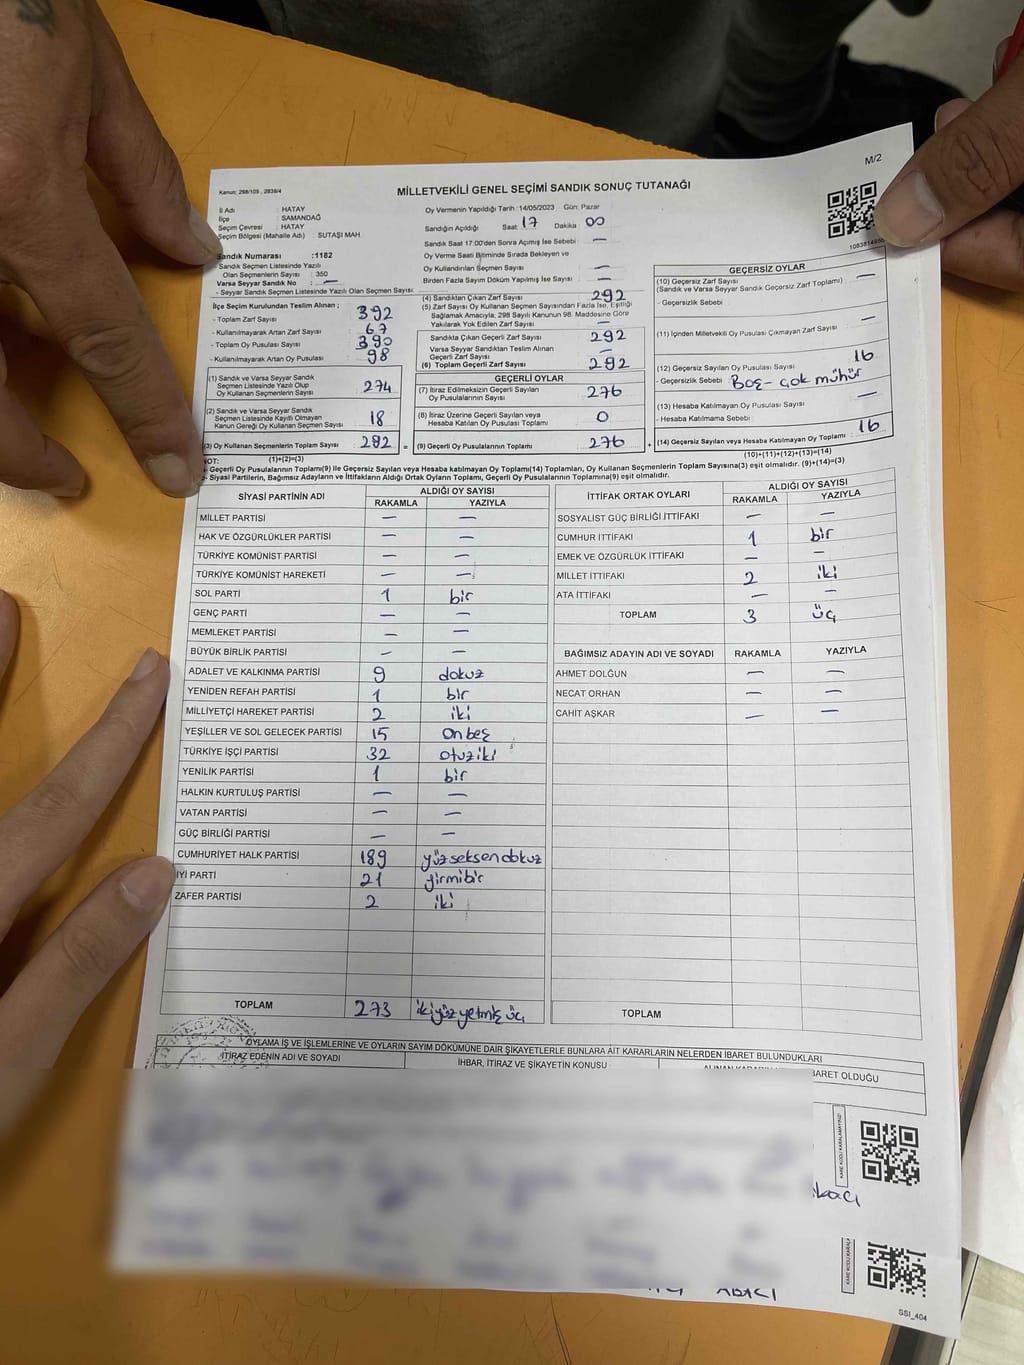 M/2
Kanun: 298/105 , 2839/4
MİLLETVEKİLİ GENEL SEÇİMİ SANDIK SONUÇ TUTANAĞI
İl Adı : HATAY
İlçe : SAMANDAĞ
Seçim Çevresi : HATAY
Seçim Bölgesi (Mahalle Adı) : SUTAŞI MAH.
Sandık Numarası :1182
- Sandık Seçmen Listesinde Yazılı
Olan Seçmenlerin Sayısı : 350
Varsa Seyyar Sandık No : —
- Seyyar Sandık Seçmen Listesinde Yazılı Olan Seçmen Sayısı:
Oy Vermenin Yapıldığı Tarih :14/05/2023 Gün: Pazar
Sandığın Açıldığı Saat 17 Dakika 00
Sandık Saat 17:00'den Sonra Açılmış İse Sebebi : —
Oy Verme Saati Bitiminde Sırada Bekleyen ve
Oy Kullandırılan Seçmen Sayısı : —
Birden Fazla Sayım Döküm Yapılmış İse Sayısı : —
İlçe Seçim Kurulundan Teslim Alınan ;
- Toplam Zarf Sayısı : 392
- Kullanılmayarak Artan Zarf Sayısı : 67
- Toplam Oy Pusulası : 390
- Kullanılmayarak Artan Oy Pusulası : 98
(1) Sandık ve Varsa Seyyar Sandık
Seçmen Listesinde Yazılı Olup
Oy Kullanan Seçmenlerin Sayısı : 274
(2) Sandık ve Varsa Seyyar Sandık
Seçmen Listesinde Kayıtlı Olmayan
Kanun Gereği Oy Kullanan Seçmen Sayısı : 18
(3) Oy Kullanan Seçmenlerin Toplam Sayısı : 292 =
(1)+(2)=(3)
(4) Sandıktan Çıkan Zarf Sayısı : 292
(5) Zarf Sayısı Oy Kullanan Seçmen Sayısından Fazla İse, Eşitliği
Sağlamak Amacıyla, 298 Sayılı Kanunun 98. Maddesine Göre
Yakılarak Yok Edilen Zarf Sayısı : —
Sandıkta Çıkan Geçerli Zarf Sayısı : 292
Varsa Seyyar Sandıktan Teslim Alınan
Geçerli Zarf Sayısı : —
(6) Toplam Geçerli Zarf Sayısı : 292
GEÇERLİ OYLAR
(7) İtiraz Edilmeksizin Geçerli Sayılan
Oy Pusulasının Sayısı : 276
(8) İtiraz Üzerine Geçerli Sayılan veya
Hesaba Katılan Oy Pusulası Toplamı : 0
(9) Geçerli Oy Pusulalarının Toplamı : 276 +
GEÇERSİZ OYLAR
(10) Geçersiz Zarf Sayısı : —
(Sandık ve Varsa Seyyar Sandık Geçersiz Zarf Toplamı)
- Geçersizlik Sebebi :
(11) İçinden Milletvekili Oy Pusulası Çıkmayan Zarf Sayısı : —
(12) Geçersiz Sayılan Oy Pusulası Sayısı : 16
- Geçersizlik Sebebi : Boş - çok mühür
(13) Hesaba Katılmayan Oy Pusulası Sayısı : —
- Hesaba Katılmama Sebebi :
(14) Geçersiz Sayılan veya Hesaba Katılmayan Oy Toplamı : 16
(10)+(11)+(12)+(13)=(14)
NOT:
- Geçerli Oy Pusulalarının Toplamı(9) ile Geçersiz Sayılan veya Hesaba katılmayan Oy Toplamı(14) Toplamları, Oy Kullanan Seçmenlerin Toplam Sayısına(3) eşit olmalıdır. (9)+(14)=(3)
- Siyasi Partilerin, Bağımsız Adayların ve İttifakların Aldığı Ortak Oyların Toplamı, Geçerli Oy Pusulalarının Toplamına(9) eşit olmalıdır.
SİYASİ PARTİNİN ADI ALDIĞI OY SAYISI
RAKAMLA YAZIYLA
MİLLET PARTİSİ — —
HAK VE ÖZGÜRLÜKLER PARTİSİ — —
TÜRKİYE KOMÜNİST PARTİSİ — —
TÜRKİYE KOMÜNİST HAREKETİ — —
SOL PARTİ 1 bir
GENÇ PARTİ — —
MEMLEKET PARTİSİ — —
BÜYÜK BİRLİK PARTİSİ — —
ADALET VE KALKINMA PARTİSİ 9 dokuz
YENİDEN REFAH PARTİSİ 1 bir
MİLLİYETÇİ HAREKET PARTİSİ 2 iki
YEŞİLLER VE SOL GELECEK PARTİSİ 15 onbeş
TÜRKİYE İŞÇİ PARTİSİ 32 otuziki
YENİLİK PARTİSİ 1 bir
HALKIN KURTULUŞ PARTİSİ — —
VATAN PARTİSİ — —
GÜÇ BİRLİĞİ PARTİSİ — —
CUMHURİYET HALK PARTİSİ 189 yüzseksendokuz
İYİ PARTİ 21 yirmibir
ZAFER PARTİSİ 2 iki
TOPLAM 273 ikiyüzyetmişüç
İTTİFAK ORTAK OYLARI ALDIĞI OY SAYISI
RAKAMLA YAZIYLA
SOSYALİST GÜÇ BİRLİĞİ İTTİFAKI — —
CUMHUR İTTİFAKI 1 bir
EMEK VE ÖZGÜRLÜK İTTİFAKI — —
MİLLET İTTİFAKI 2 iki
ATA İTTİFAKI — —
TOPLAM 3 üç
BAĞIMSIZ ADAYIN ADI VE SOYADI RAKAMLA YAZIYLA
AHMET DOLĞUN — —
NECAT ORHAN — —
CAHİT AŞKAR — —
TOPLAM
OYLAMA İŞ VE İŞLEMLERİNE VE OYLARIN SAYIM DÖKÜMÜNE DAİR ŞİKAYETLERLE BUNLARA AİT KARARLARIN NELERDEN İBARET BULUNDUKLARI
İTİRAZ EDENİN ADI VE SOYADI İHBAR, İTİRAZ VE ŞİKAYETİN KONUSU
BARET OLDUĞU
SSI_404